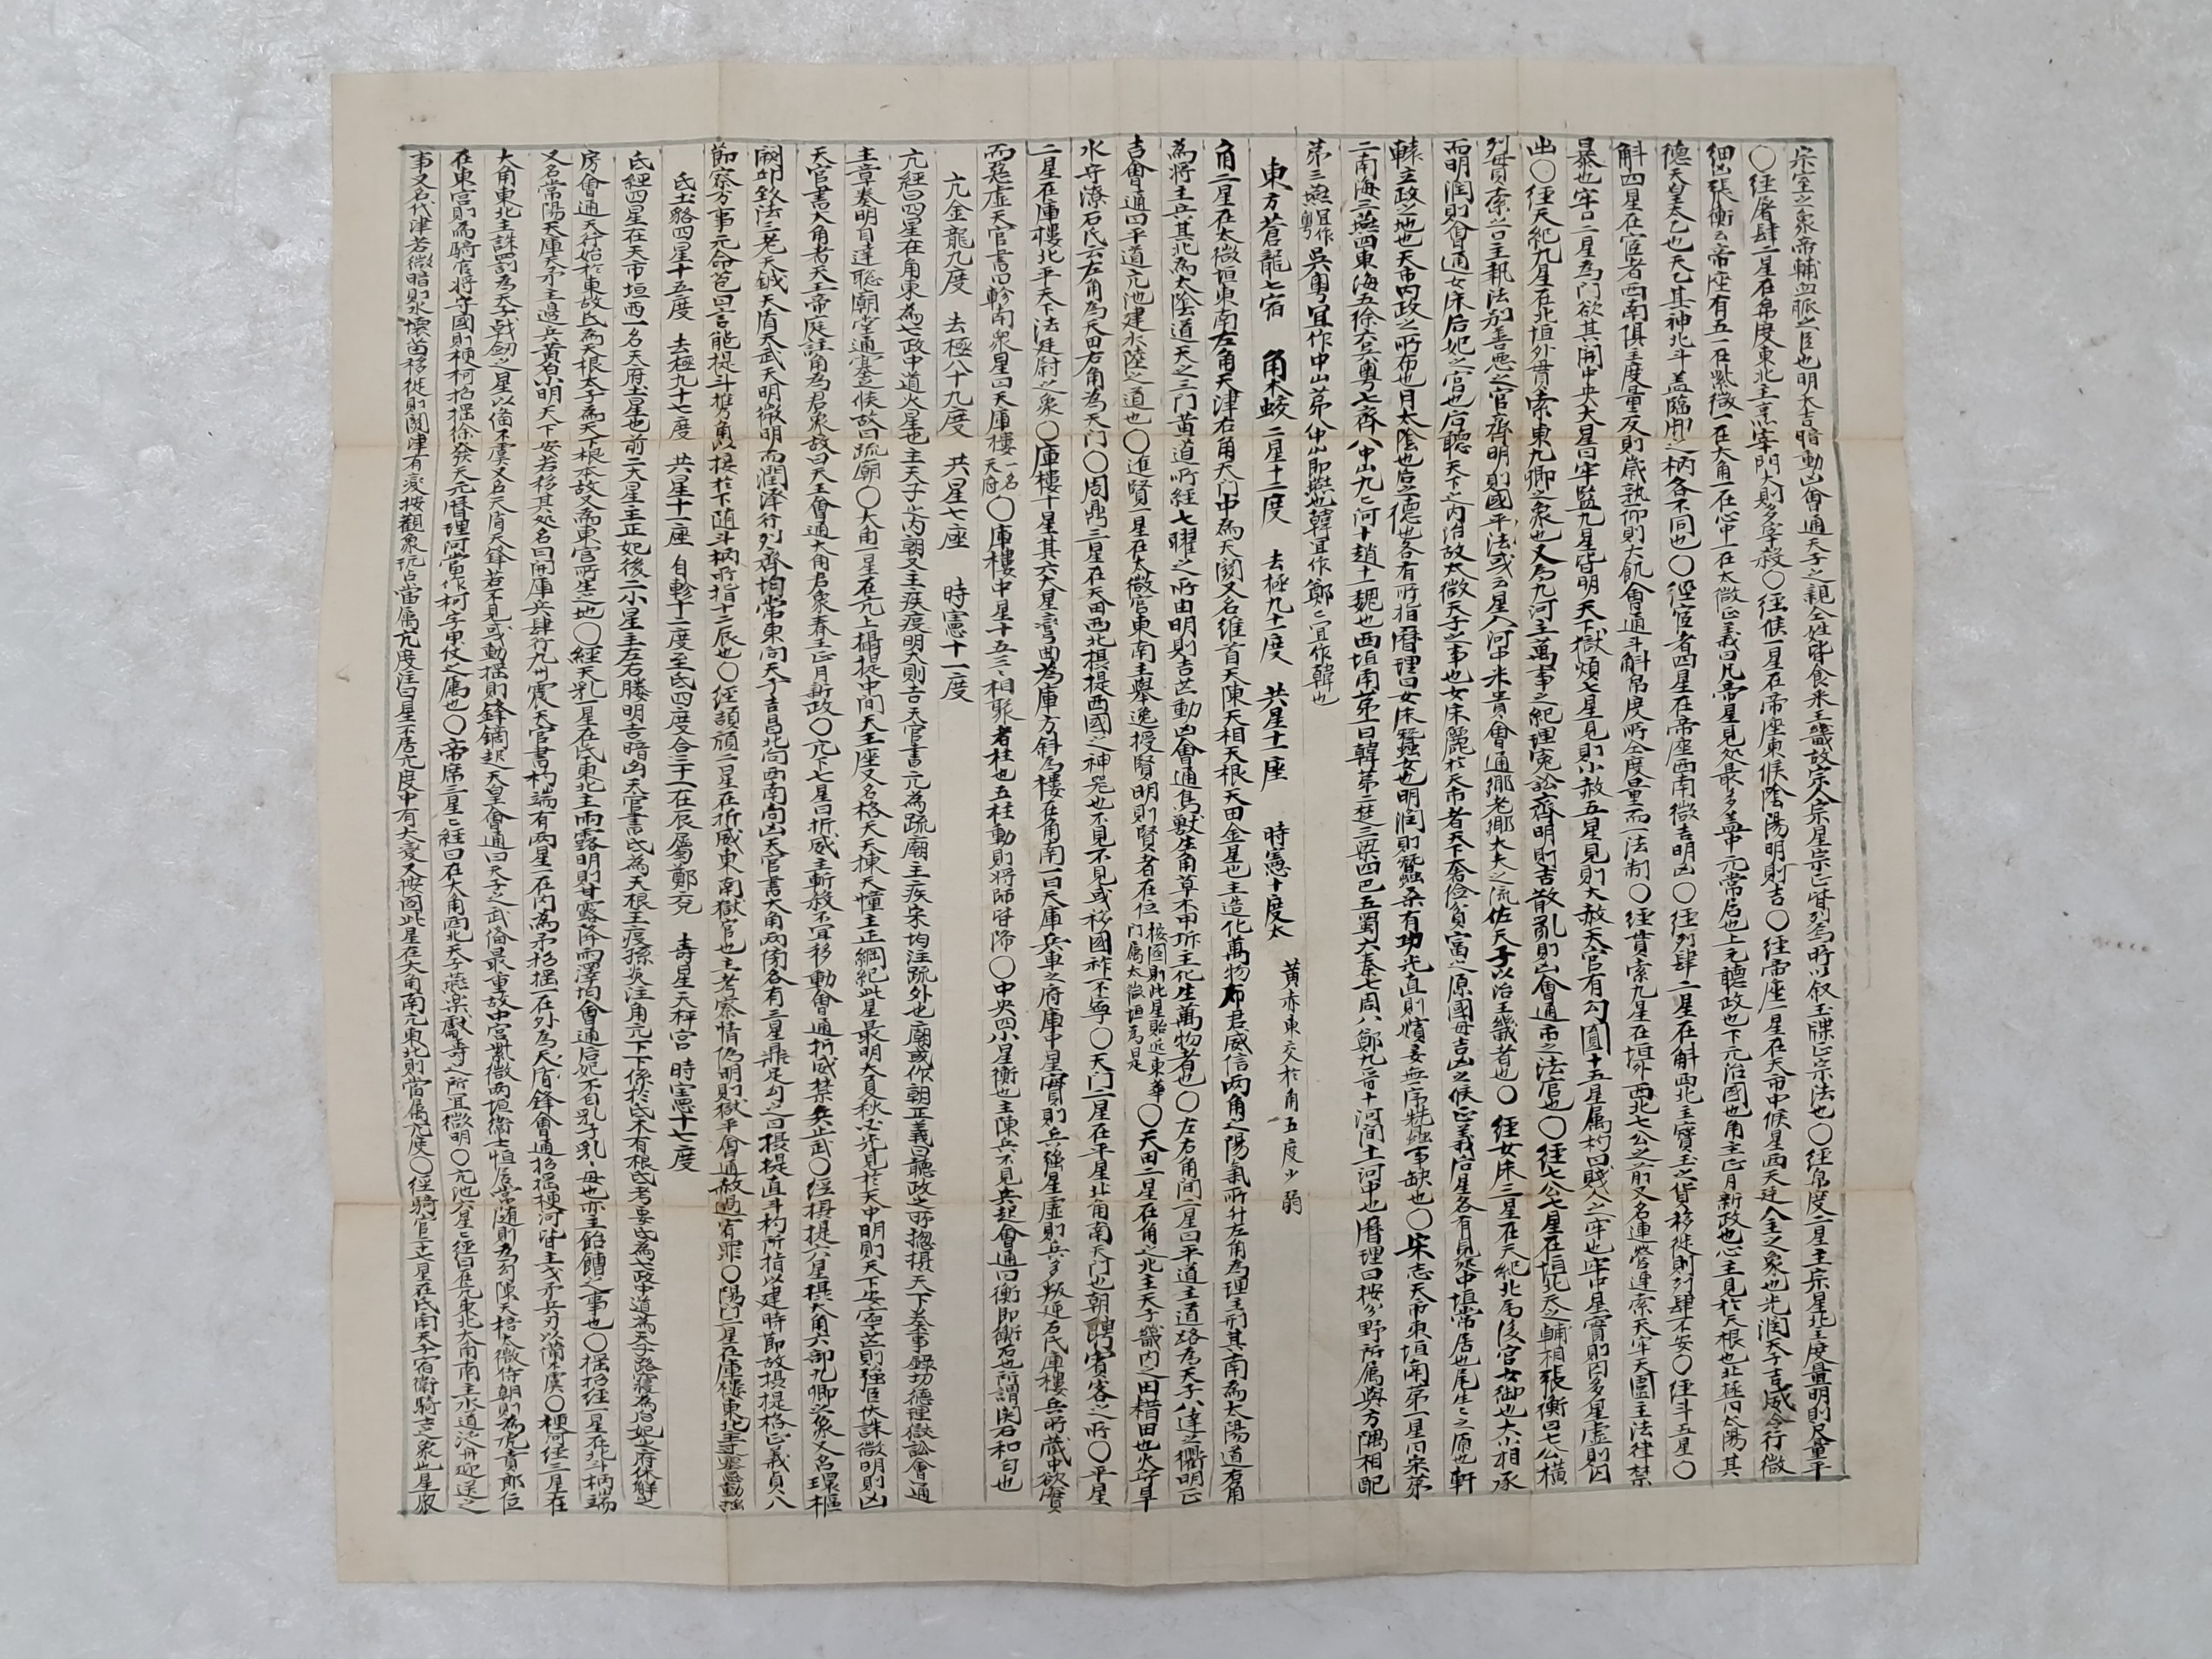 宗室之象帝輔血脈之臣也明大吉暗動凶會通天子之親仝姓皆食采王畿故宗人宗星宗正皆列焉所以叙玉牒正宗法也〇經帛度二星主宗星北主度量明則尺量平
〇經屠肆二星在帛度東北主烹宰門大則多宰殺〇經候一星在帝座東候陰陽明則吉〇經帝座一星在天市中候星西天廷人主之象也光潤天子吉威令行微
細凶張衡云帝座有五一在紫微一在大角一在心中一在太微正義曰凡帝星見処最多盖中元常居也上元聽政也下元治國也角主正月新政也心主見於天根也北極曰太陽其
德天皇太乙也天乙其神北斗盖臨用之柄各不同也〇經宦者四星在帝座西南微吉明凶〇經列肆二星在斛西北主寳玉之貨移徙則列肆不安〇經斗五星〇
斛四星在宦者西南俱主度量反則歳熟仰則大飢會通斗斛帛度所仝度量而一法制〇經貫索九星在垣外西北七公之前又名連營連索天牢天圄主法律禁
暴也牢口一星為門欲其開中央大星曰牢監九星皆明天下獄煩七星見則小赦五星見則大赦天官有勾圓十五星属杓曰賤人之牢也牢中星實則囚多星虛則囚
出〇經天紀九星在北垣外貫索東九卿之象也又為九河主萬事之紀理冤訟齊明則吉散亂則凶會通市之法官也〇經七公七星在垣北天之輔相張衡曰七公橫
列貫索之口主執法别善惡之官齊明則國平法或云星入河中米貴會通鄉老鄉大夫之流佐天子以治王畿者也〇經女床三星在天紀北為後宮女御也大小相承
而明潤則會通女床后妃之宮也后聽天下之内治故太微天子之事也女床麗於天市者天下奢儉貧富之原國母吉凶之候正義后星各有見処中垣常居也尾生之原也軒
轅主政之地也天市内政之所布也月太陰也后之德也各有所指曆理曰女床蚕女也明潤則蠶桑有功光直則嬪妾無序蚕事缺也〇宋志天市東垣南第一星曰宋第
二南海三燕四東海五徐六吳粤七齊八中山九九河十趙十一魏也西垣南第一曰韓第二楚三梁四巴五蜀六秦七周八鄭九晉十河间十一河中也曆理曰按分野所属與方隅相配
第三燕宜作粤吳粤宜作中山第八中山即燕也韓宜作鄭鄭宜作韓也
東方蒼龍七宿　角木蛟二星十二度　去極九十一度　共星十一座　時憲十度太　黄赤東交於角五度少弱
角二星在太微垣東南左角天津右角天門中為天関又名維首天陳天相天根天田金星也主造化萬物布君威信両角之陽氣所升左角為理主刑其南為太陽道右角
為將主兵其北為太陰道天之三門黄道所經七曜之所由明則吉芒動凶會通鳥獸生角草木甲坼主化生萬物者也〇左右角间二星曰平道主道路為天子八達之衢明正
吉會通曰平道亢池建水陸之道也〇進賢一星在太微宮東南主舉逸授賢明則賢者在位按圖則此星貽近東華門属太微垣為是〇天田二星在角之北主天子畿内之田耤田也火守旱
水守潦石氏云左角為天田右角為天门〇周鼎三星在天田西北摂提西國之神器也不見不見或移國祚不寧〇天门二星在平星北角南天门也朝聘賓客之所〇平星
二星在庫樓北平天下法廷尉之象〇庫樓十星其六大星彎曲為庫方斜為樓在角南一曰天庫兵車之府庫中星實則兵強星虛則兵多叛逆石氏庫樓兵所藏中欲實
而惡虛天官書曰軫南衆星曰天庫樓一名天府〇庫樓中星十五三三相聚者柱也五柱動則將師皆帰〇中央四小星衡也主陳兵不見兵起會通曰衡即衡石也所謂関石和匀也
亢金龍九度　去極八十九度　共星七座　時憲十一度
亢經曰四星在角東為七政中道火星也主天子之内朝又主疾疫明大則吉天官書亢為疏廟主疾宋均注疏外也廟或作朝正義曰聽政之所摠摂天下奏事錄功德理獄訟會通
主章奏明目達聡廟堂通塞之候故曰疏廟〇大角一星在亢上摄提中间天王座又名格天天棟天幢主正綱紀此星最明大夏秋必光見於天中明則天下安寕芒則強臣伏誅微明則凶
天官書大角者天王帝庭註角為君象故曰天王會通大角君象春王正月新政〇亢下七星曰折威主斬殺不宜移動會通折威禁兵止武〇經摂提六星摂大角六部九卿之象又名環樞
闕邱致法三老天鉞天盾天武天明微明而潤泽行列齊均常東向天子吉昌北向西南向凶天官書大角両傍各有三星鼎足勾之曰摂提直斗杓所指以建時節故摂提格正義貞八
節察万事元命苞曰言能提斗攜角以接於下随斗柄所指十二辰也〇經頡頏二星在折威東南獄官也主考察情偽明則獄平會通赦過宥罪〇陽门二星在庫樓東北主守塞忌動揺
氐土貉四星十五度　去極九十七度　共星十一座　自軫十二度至氐四度合三十一在辰屬鄭兗　壽星天秤宮　時憲十七度
氐經四星在天市垣西一名天府土星也前二大星主正妃後二小星主左右媵明吉暗凶天官書氐為天根主疫孫炎注角亢下下係於氐木有根氐考要氐為七政中道為天子路寢為后妃之府休觧之
房會通天行始於東故氐為天根太子為天下根本故又為東宮所生之地〇經天乳一星在氐東北主雨露明則甘露降而澤均會通后妃不自乳子乳母也亦主飴饍之事也〇招摇經一星在北斗柄端
又名常陽天庫天矛主邉兵黄白小明天下安若移其処名曰開庫兵肆行九州震天官書杓端有两星一在内為矛招摇一在外為天盾鋒會通招摇梗河皆主戈矛兵刃以備不虞〇梗河經三星在
大角東北主誅罰為天子戟劎之星以偹不虞又名天盾天鋒若不見或動揺則鋒鏑起天皇會通曰天子之武偹最重故中宮紫微两垣衞士恒居常随則為勾陳天棓太微侍朝則為虎賁郎位
在東宮則為騎官將守國則梗柯招摇徐發天元曆理河當作柯字甲仗之属也〇帝席三星三經曰在大角西北天子燕樂獻壽之所宜微明〇亢池六星三經曰在亢東北大角南主水道送舟迎送之
事又名代津若微暗則水壞苗移徙則関津有変按觀象玩占當属亢度注曰星不居亢度中有大变又按図此星在大角南亢東北則當属亢度〇經騎官二十七星在氐南天子宿衛騎士之象也星衆